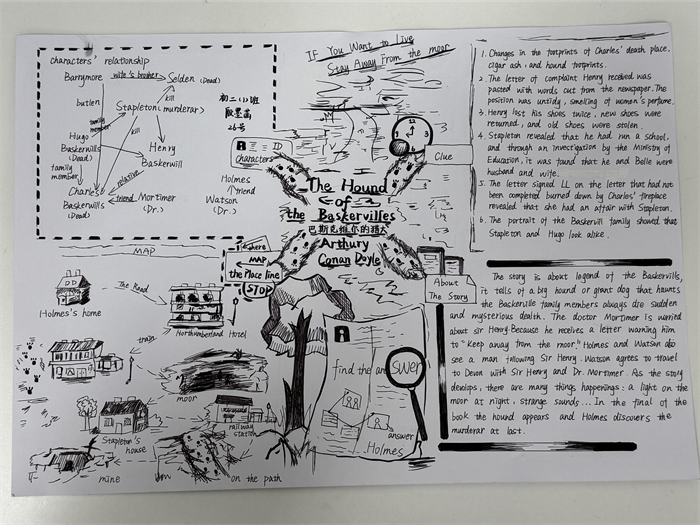 characters' relationship
Barrymore wife's broher Selden (Dead)
butler
kill
Stapleton (murderar)
family member
kill
Hugo Baskervills (Dead)
Henry Baskerwill
family member
relative
Charles Baskervills (Dead)
friend Mortimer (Dr.)
初二(1)班
26号
Characters
Holmes
friend
Watson (Dr.)
IF You Want to Live
Stay Away From the moor
12
3
Clue
The Hound
of
the Baskervillses
巴斯克维尔的猎犬
Arthury
Conan Doyle
1. Changes in the footprints of Charles' death place,
cigar ash, and hound footprints.
2. The letter of complaint Henry received was
pasted with words cut from the newspaper. The
position was untidy, smelling of women's perfume.
3. Henry lost his shoes twice, new shoes were
returned, and old shoes were stolen.
4. Stapleton revealed that he had run a school,
and through an investigation by the Ministry of
Education, it was found that he and Belle were
husband and wife.
5. The letter signed LL on the letter that had not
been completed burned down by Charles' fireplace
revealed that she had an affair with Stapleton.
6. The portrait of the Baskervill family showed that
Stapleton and Hugo look alike.
MAP
where
MAP
the place line
STOP
The Road
Holmes's home
Northumberland Hotel
train
moor
railway station
Stapleton's house
mine
on the path
find the answer
answer
Holmes
About
The Story
The story is about legend of the Baskervilles,
it tells of a big hound or giant dog that haunts
the Baskerville family members always die sudden
and mysterious death. The doctor Mortimer is worried
about sir Henry Because he receives a letter warning him
to "keep away from the moor." Holmes and Watson also
see a man following Sir Henry. Watson agrees to travel
to Devon with Sir Henry and Dr. Mortimer. As the story
develops, there are many things happenings: a light on the
moor at night, strange sounds... In the final of the
book the hound appears and Holmes discovers the
murderar at last.